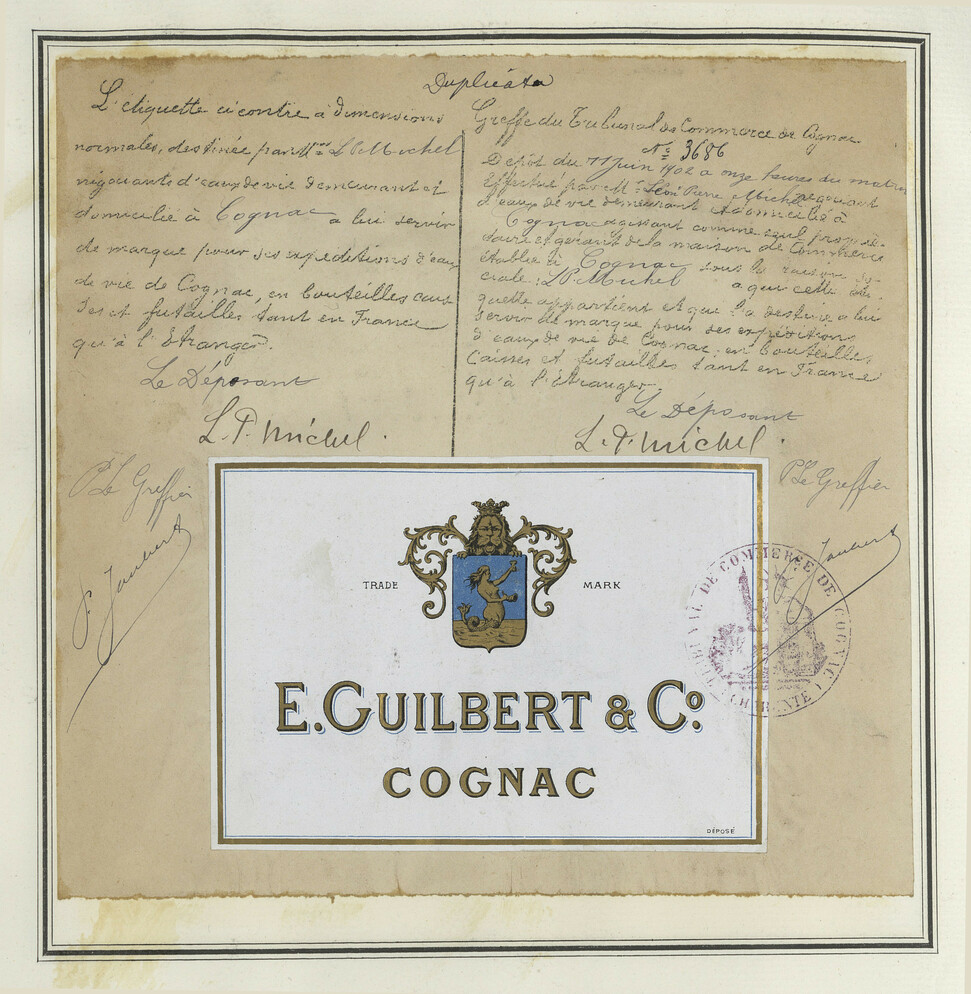 Duplicata
L'étiquette ci contre à dimensions
normales, destinée par L P Michel
négociants d'eaux de vie demeurant et
domicilié à Cognac a lui servir
de marque pour ses expéditions d'eaux
de vie de Cognac, en bouteilles cais
ses et futailles tant en France
qu'à l'Etranger.
Le Déposant
L. P. Michel.
P. Le Greffier
J. Jaubert
Greffe du Tribunal de Commerce de Cognac
N° 3686
Depôt du 11 Juin 1902 a onze heures du matin
Effectué par Mr Léon Pierre Michel negociant
d'eaux de vie demeurant et domicilié à
Cognac agissant comme seul proprié-
taire et gérant de la maison de Commerce
établie à Cognac sous la raison so-
ciale L P Michel a qui cette éti-
quette appartient et que l'a destine a lui
servir de marque pour ses expéditions
d'eaux de vie de Cognac, en bouteilles,
Caisses et futailles tant en France
qu'à l'étranger.
Le Déposant
L. P. Michel.
P. Le Greffier
Jaubert
TRIBUNAL DE COMMERSE DE COGNAC
CHARENTE
TRADE MARK
E. GUILBERT & Co.
COGNAC
DÉPOSÉ